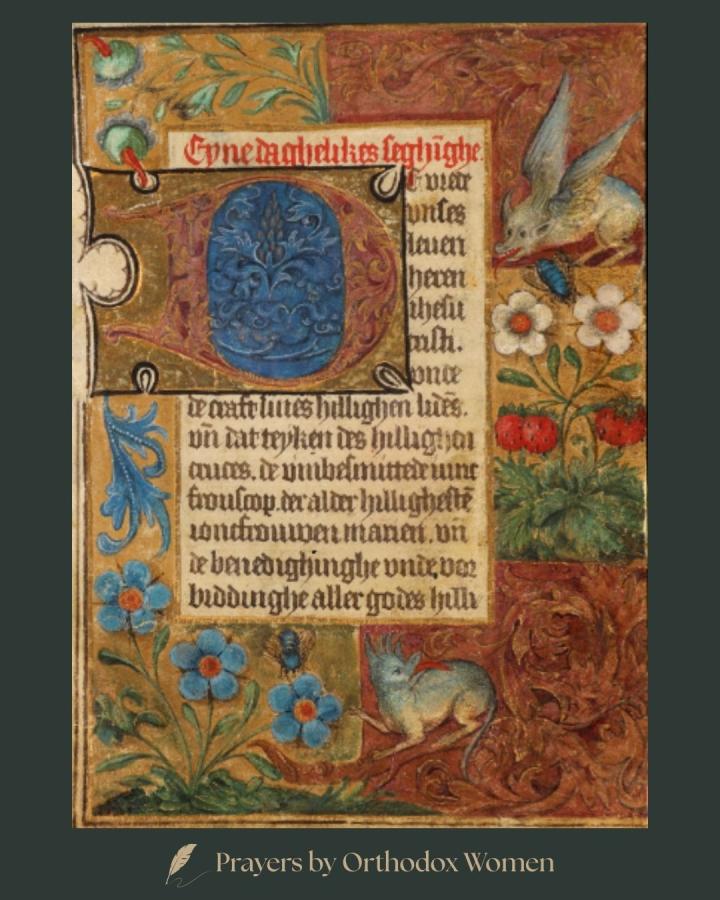 Eyne daghelikes seghīghe.
DE vrede
vnses
leuen
heren
ihesu
cristi.
vnde
de craft sines hillighen lides.
vn̄ dat teyken des hillighen
cruces. de vmbesmittede iunc
frouscop. der alder hillighestē
ioncfrouwen marien. vn̄
de benedighinghe vnde vor
biddinghe aller godes hilli
Prayers by Orthodox Women